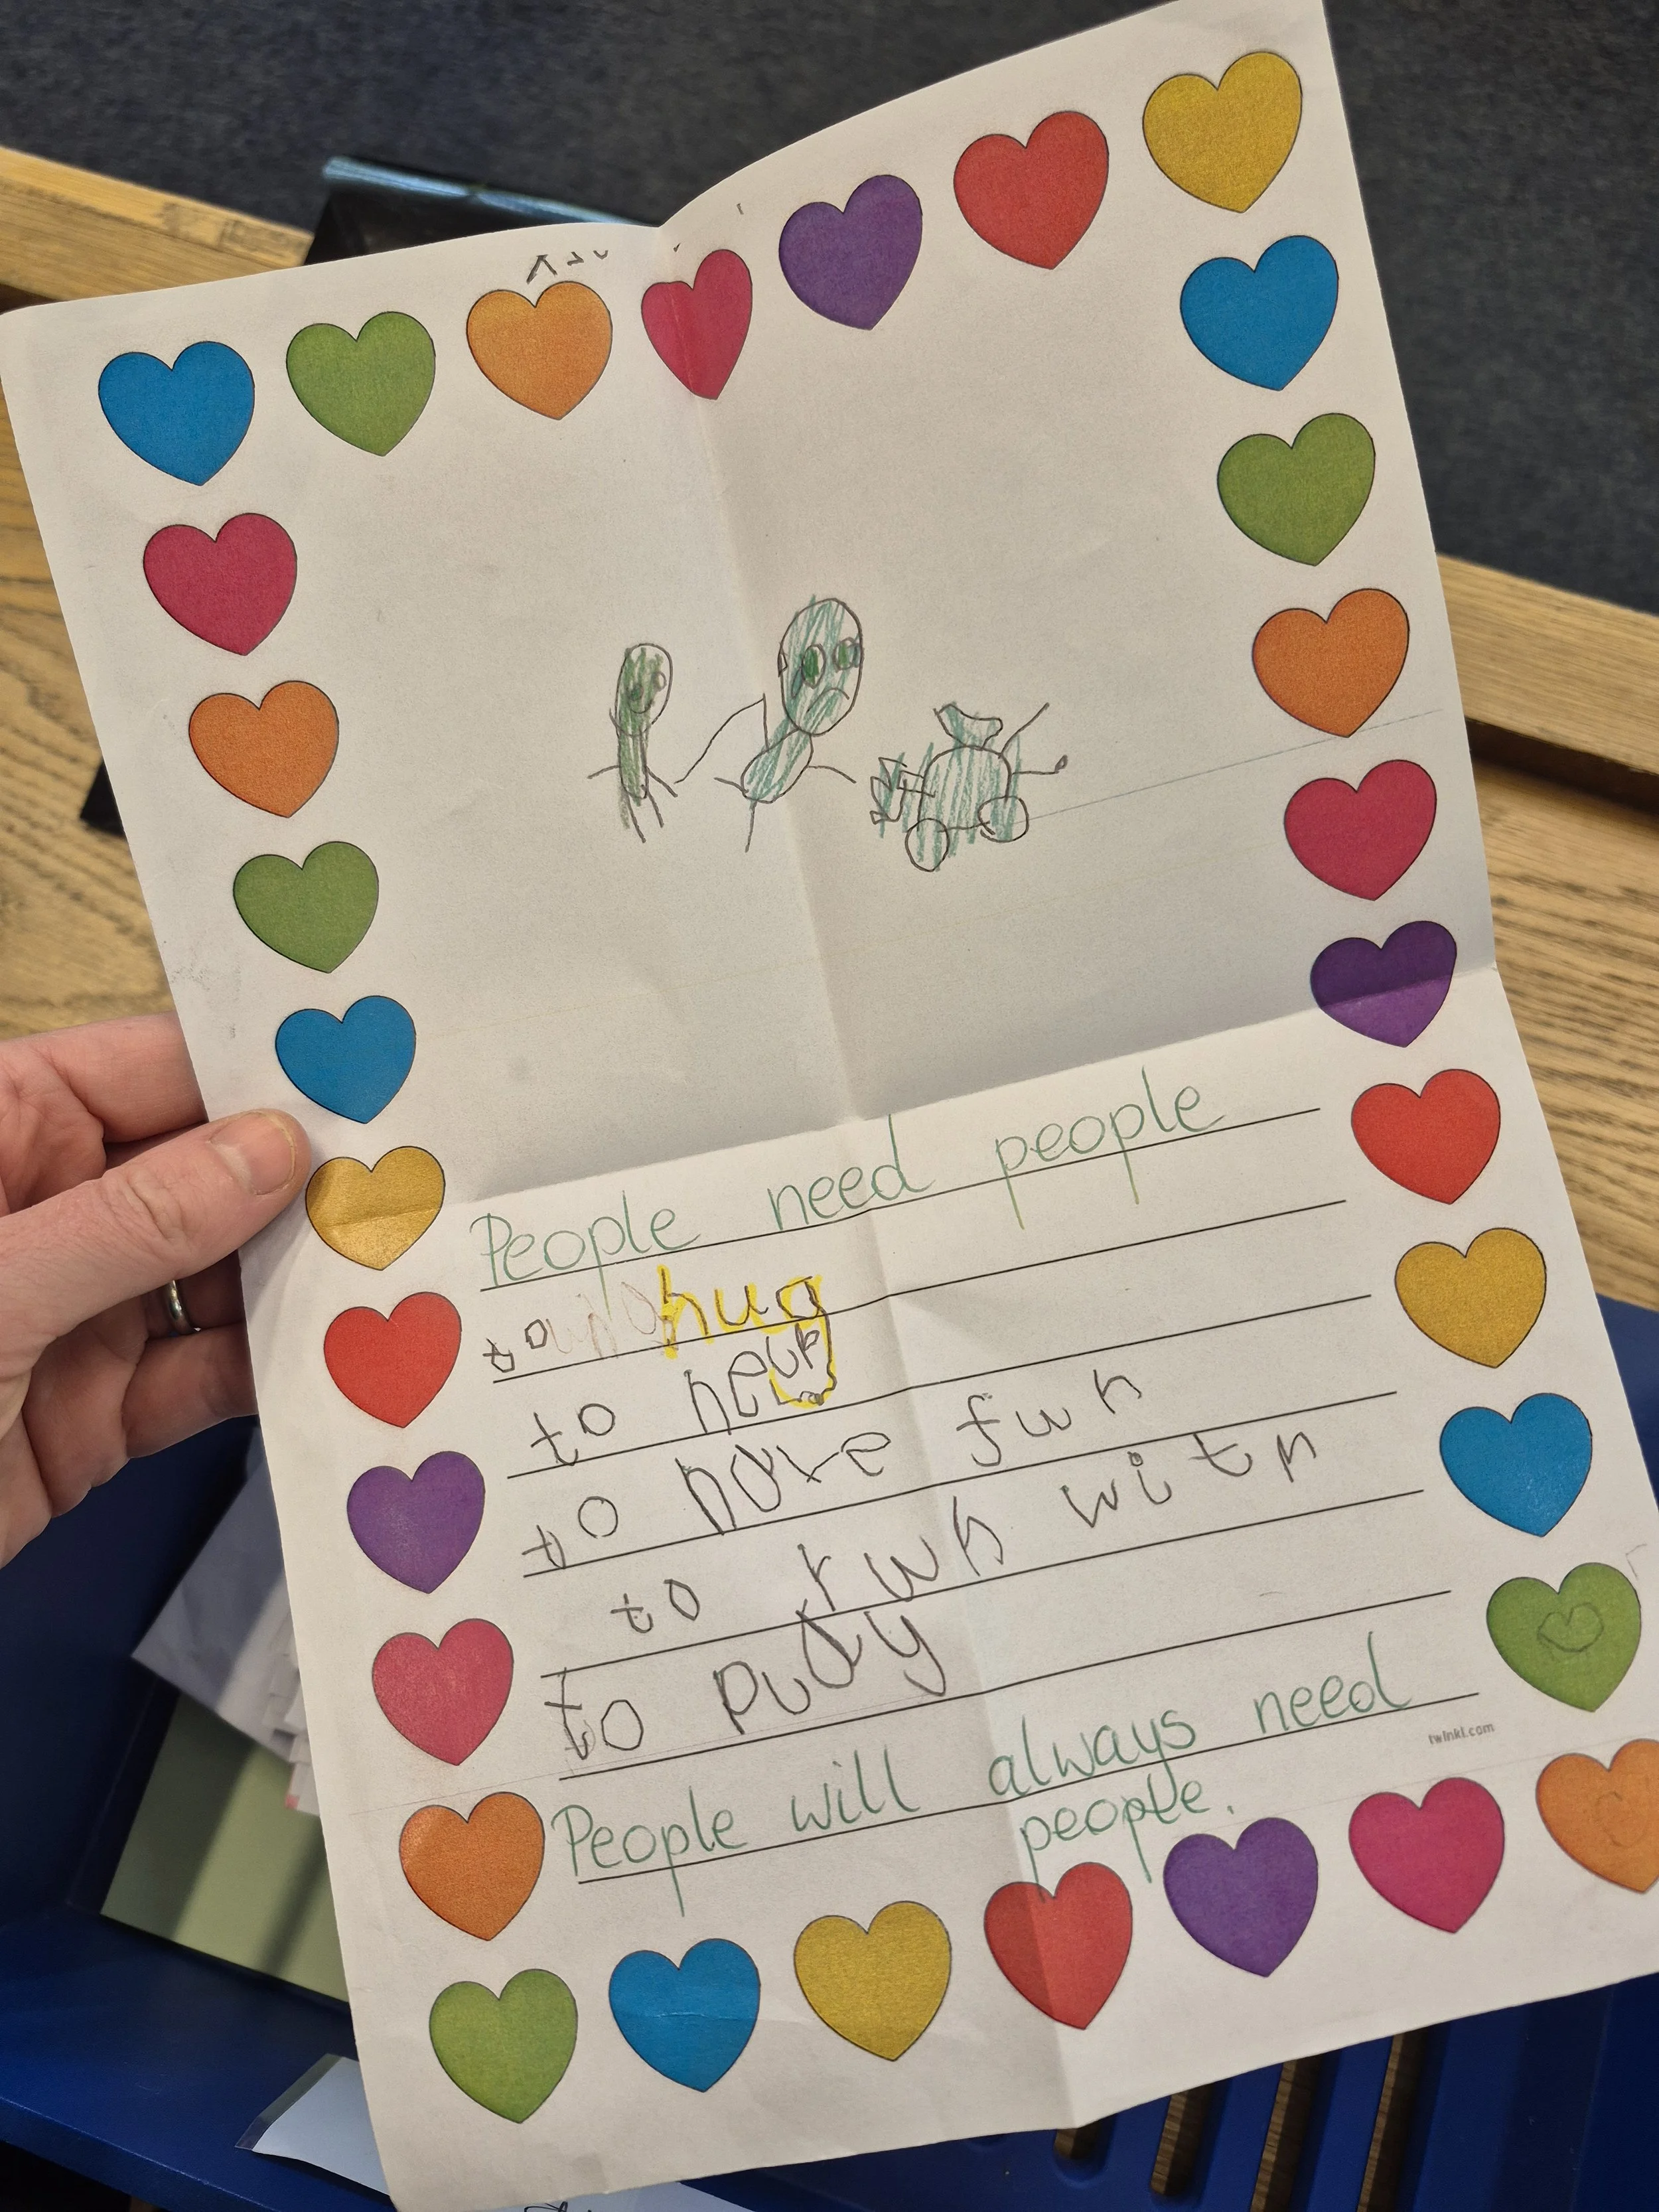 People need people
to hug
to help
to have fun
to run with
to play
People will always need
people.
twinkl.com